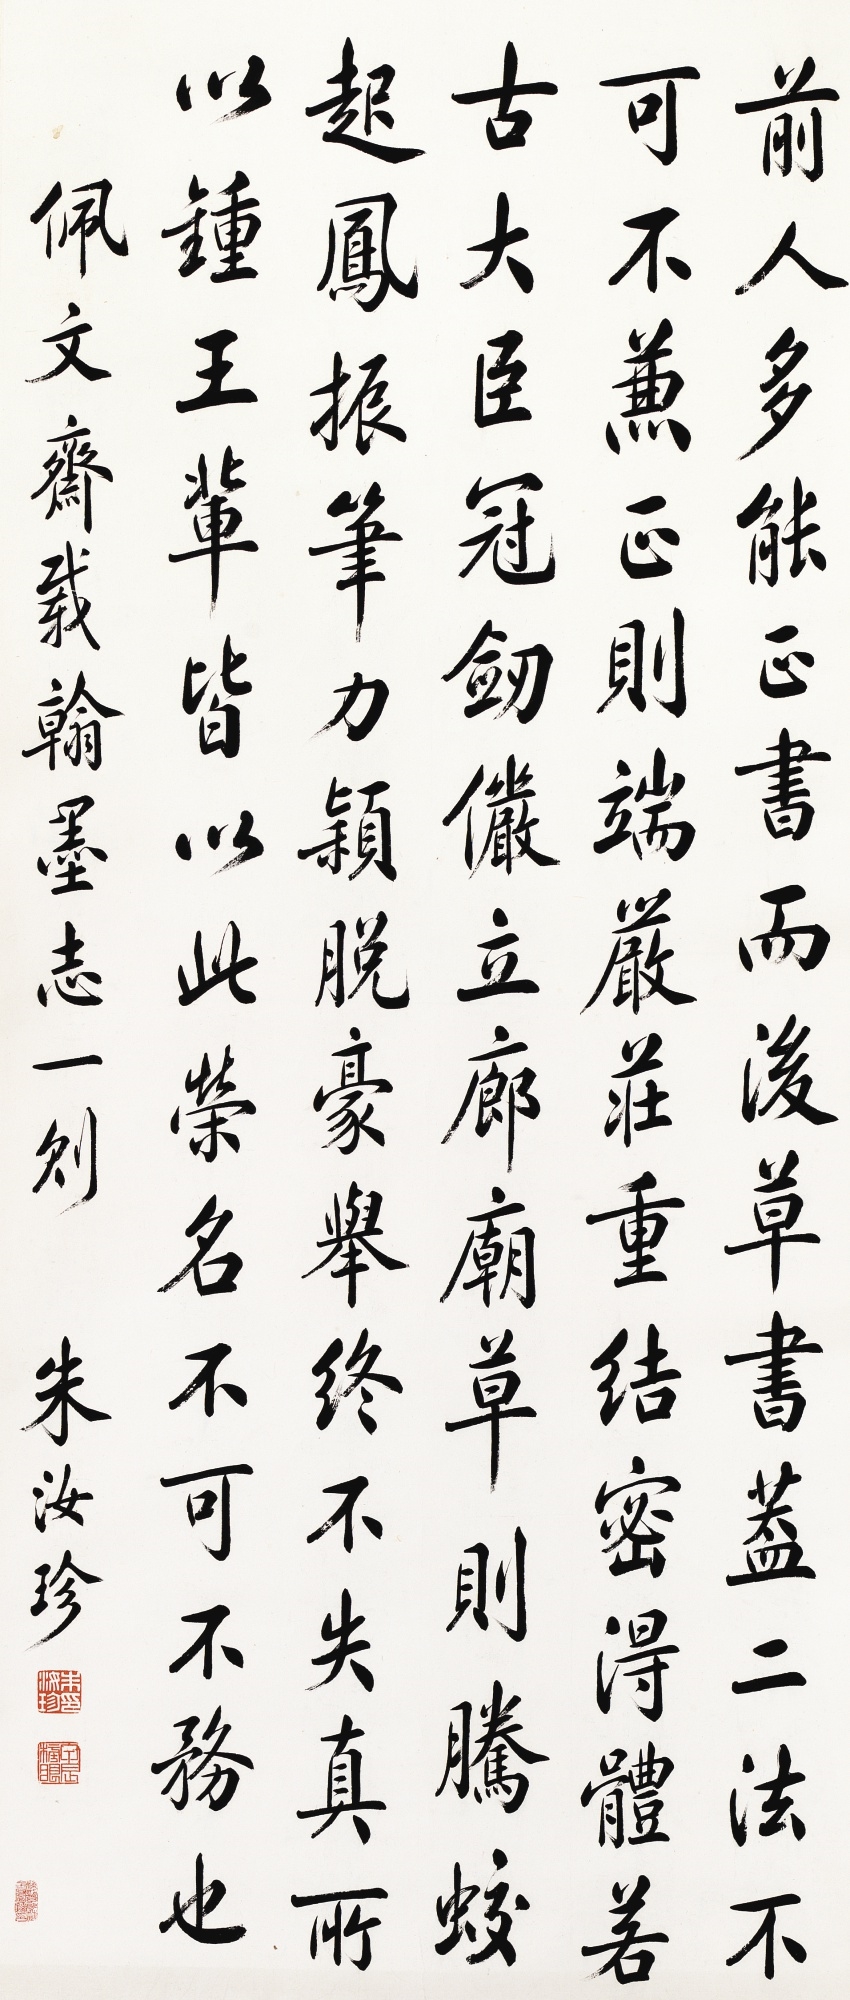 前人多能正書而後草書蓋二法不
可不兼正則端嚴莊重結密得體若
古大臣冠劒儼立廊廟草則騰蛟
起鳳振筆力穎脫豪舉終不失真所
以鍾王輩皆以此榮名不可不務也
佩文齋載翰墨志一則
朱汝珍
朱汝珍印
甲辰榜眼